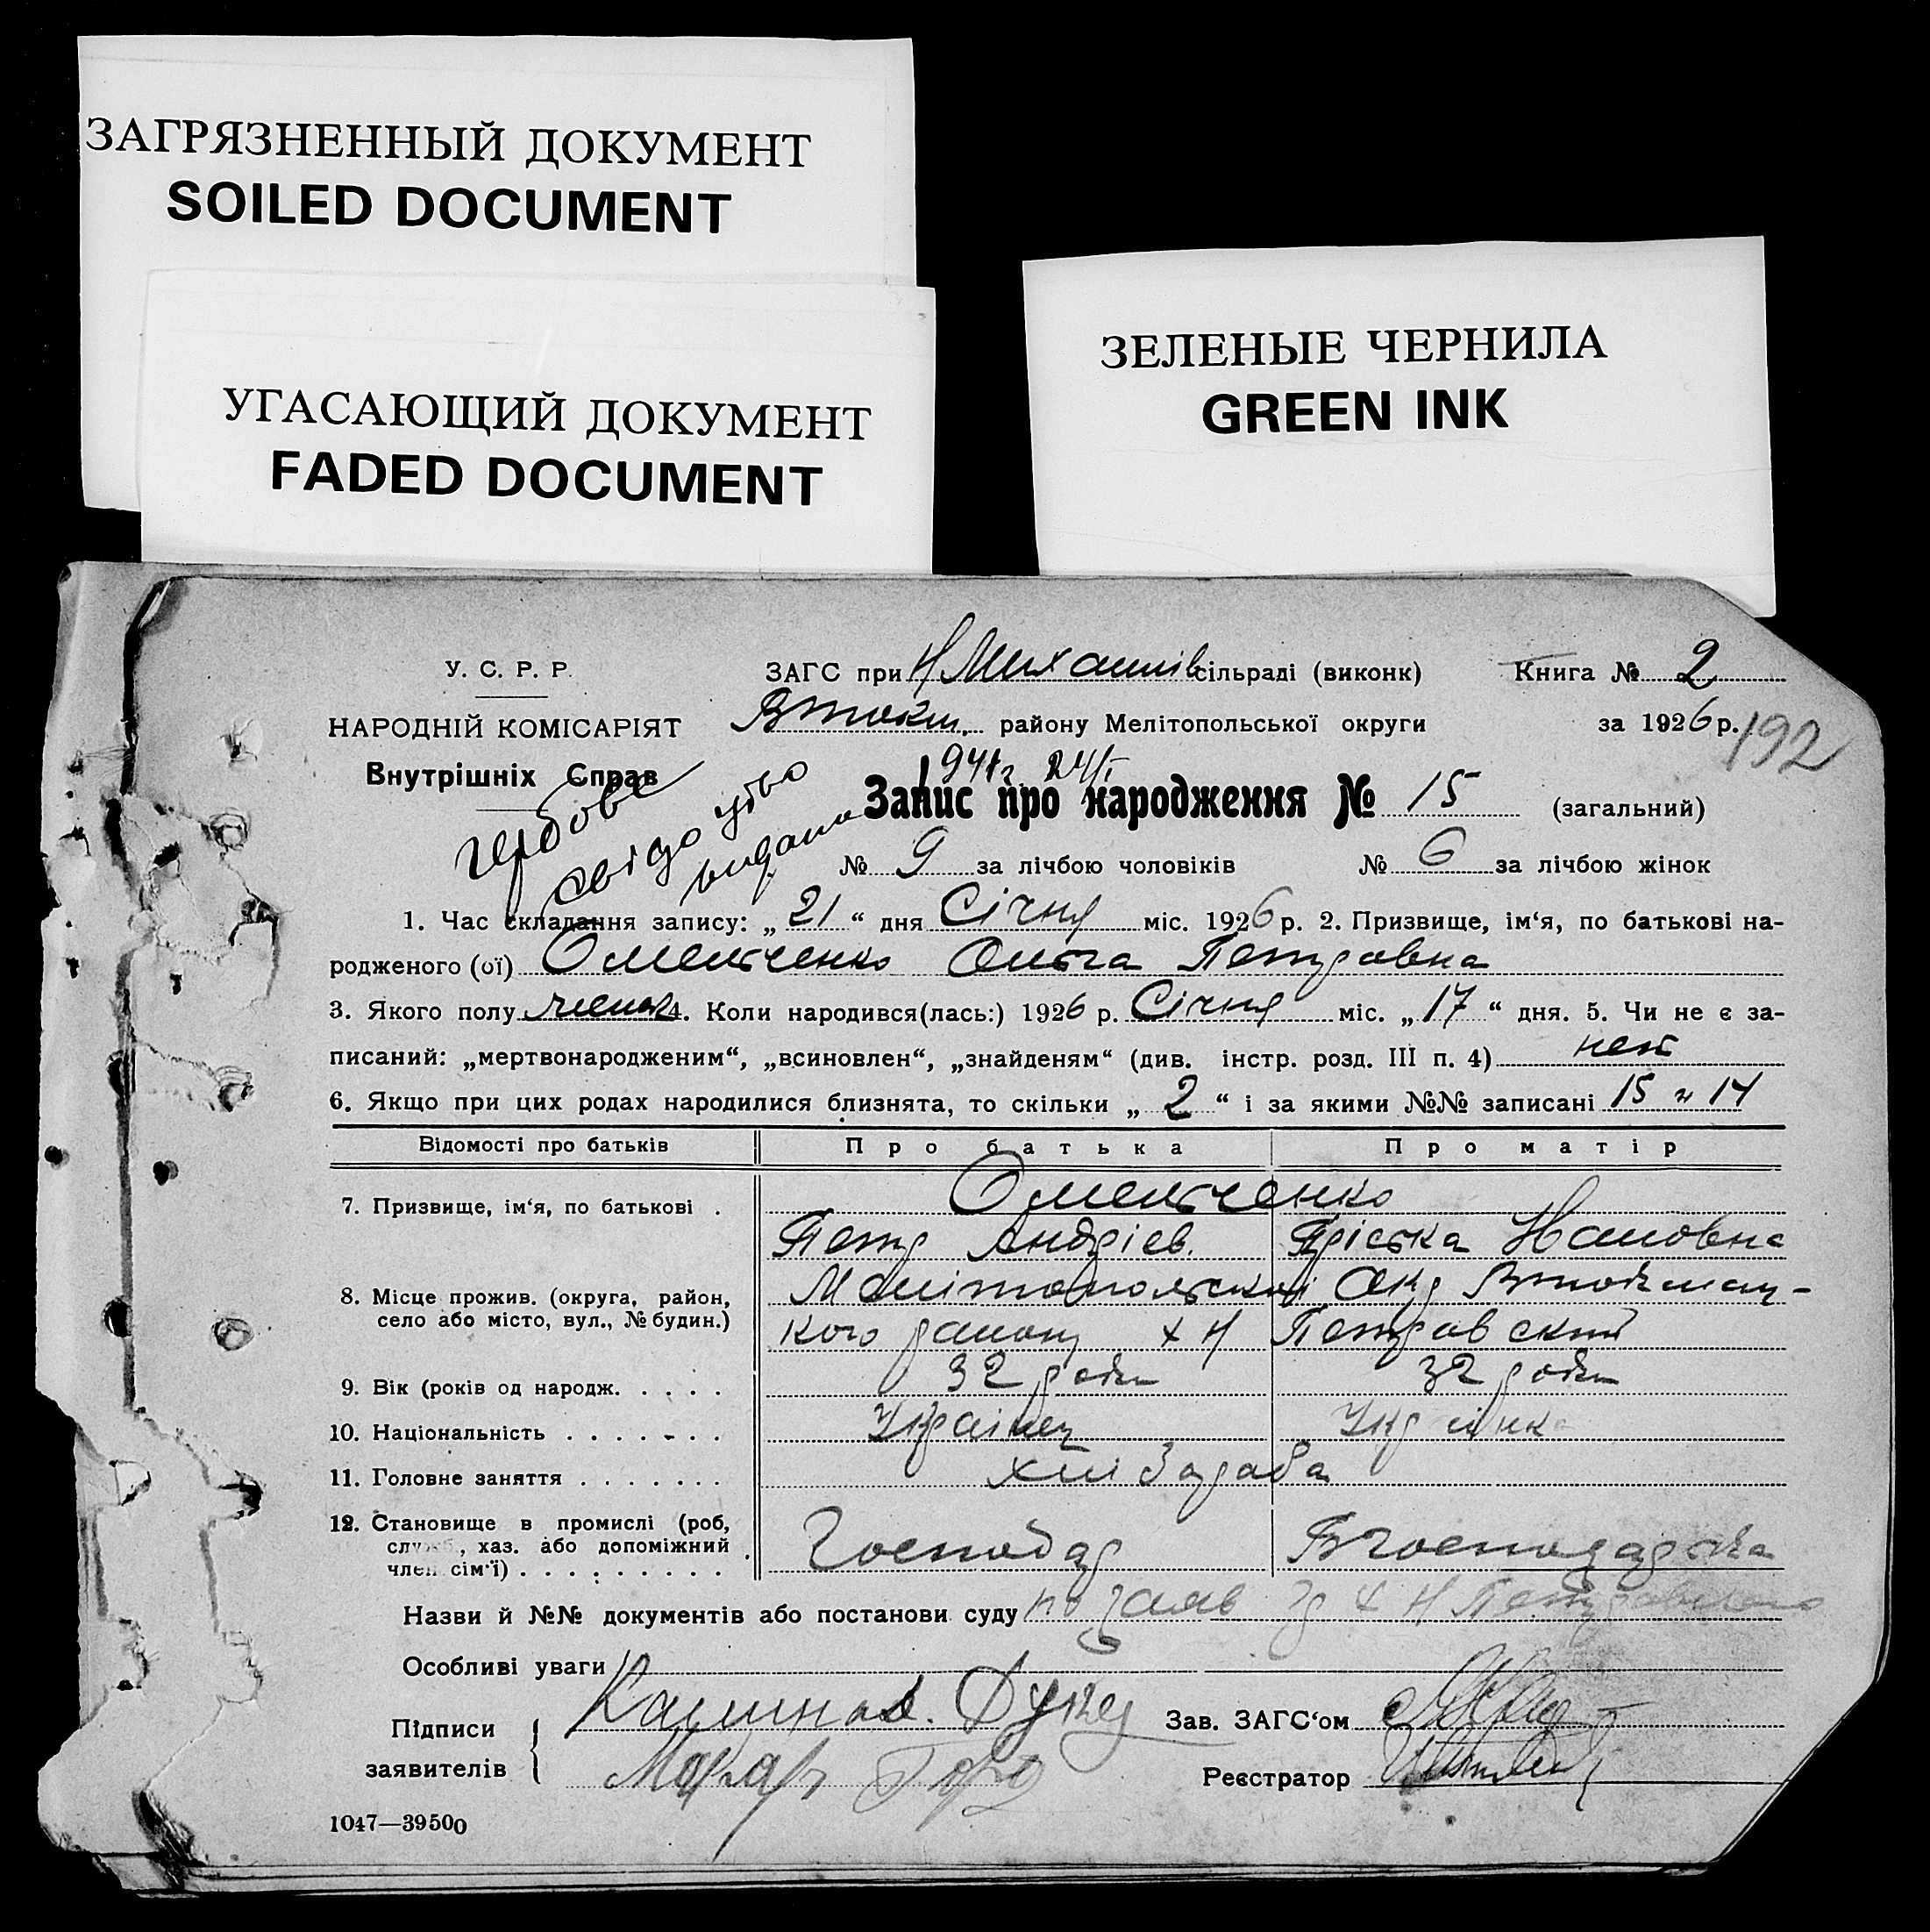 ЗАГРЯЗНЕННЫЙ ДОКУМЕНТ
SOILED DOCUMENT
УГАСАЮЩИЙ ДОКУМЕНТ
FADED DOCUMENT
ЗЕЛЕНЫЕ ЧЕРНИЛА
GREEN INK
У. С. Р. Р.
НАРОДНІЙ КОМІСАРІЯТ
Внутрішніх Справ
ЗАГС при Н Михайлів сільраді (виконк)
Втокм. району Мелітопольської округи
Книга № 2
за 1926 р.
192
1941г. 24/I
гербове
свідоцтво
видано
Запис про народження № 15 (загальний)
№ 9 за лічбою чоловіків № 6 за лічбою жінок
1. Час складання запису: „ 21 “ дня Січня міс. 1926 р. 2. Призвище, ім‘я, по батькові на-
родженого (ої) Омельченко Ольга Петровна
3. Якого полу женск 4. Коли народився(лась:) 1926 р. Січня міс. „ 17 “ дня. 5. Чи не є за-
писаний: „мертвонародженим“, „всиновлен“, „знайденям“ (див. інстр. розд. III п. 4) нет
6. Якщо при цих родах народилися близнята, то скільки „ 2 “ і за якими №№ записані 15 и 14
Відомості про батьків Про батька Про матір
7. Призвище, ім‘я, по батькові . Омельченко
Петр Андріев. Пріська
8. Місце прожив. (округа, район,
село або місто, вул., № будин.)
Мелітопольской Окр
кого району х Н Петровский
9. Вік (років од народж. . . . . 32 годи 32 годи
10. Національність . . . . . . . Українец Українка
11. Головне заняття . . . . . . . хлі
12. Становище в промислі (роб,
служб, хаз. або допоміжний
член сім‘ї) . . . . . . . . .
Господар Господарка
Назви й №№ документів або постанови суду по заяв гр х Н Петровского
Особливі уваги
Підписи
заявителів
Калинов.
Макар
Зав. ЗАГС‘ом
Реєстратор
1047—39500